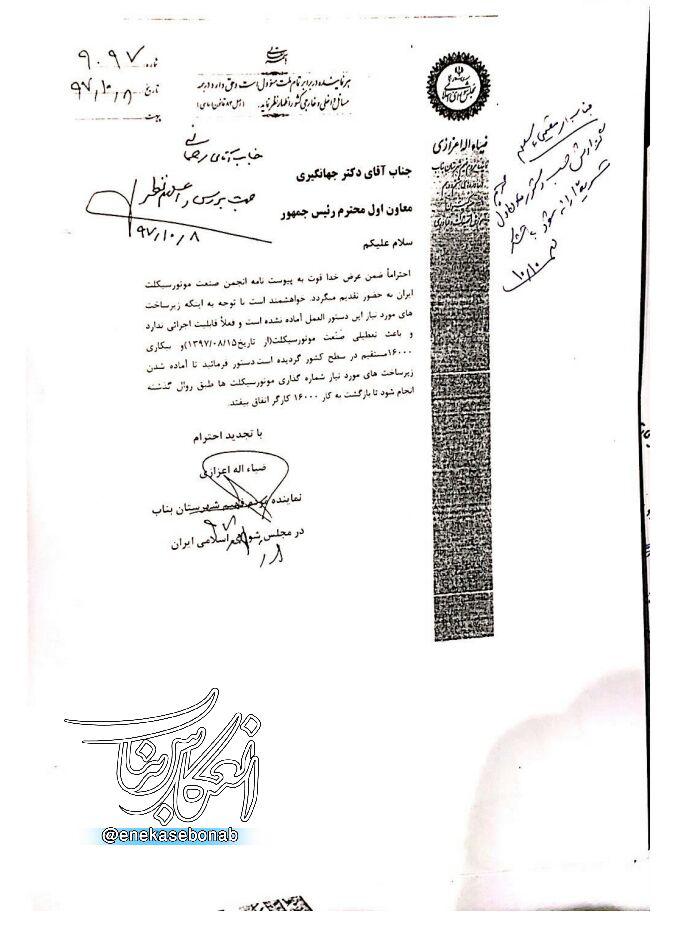 هر نماینده در برابر تمام ملت مسؤول است و حق دارد در همه
مسائل داخلی و خارجی کشور اظهار نظر نماید.
شماره ۹۰۹۷
تاریخ ۹۷/۱۰/۸
پیوست
ضیاء اله اعزازی
جناب آقای رضائی
جهت بررسی و اعلام نظر
۹۷/۱۰/۸
جناب آقای دکتر جهانگیری
معاون اول محترم رئیس جمهور
سلام علیکم
احتراماً ضمن عرض خدا قوت به پیوست نامه انجمن صنعت موتورسیکلت
ایران به حضور تقدیم میگردد. خواهشمند است با توجه به اینکه زیرساخت
های مورد نیاز این دستور العمل آماده نشده است و فعلاً قابلیت اجرائی ندارد
و باعث تعطیلی صنعت موتورسیکلت(از تاریخ۱۳۹۷/۰۸/۱۵)و بیکاری
۱۶۰۰۰مستقیم در سطح کشور گردیده است دستور فرمائید تا آماده شدن
زیرساخت های مورد نیاز شماره گذاری موتورسیکلت ها طبق روال گذشته
انجام شود تا بازگشت به کار ۱۶۰۰۰ کارگر اتفاق بیفتد.
با تجدید احترام
ضیاء اله اعزازی
نماینده مردم فهیم شهرستان بناب
در مجلس شورای اسلامی ایران
انعکاس بناب
@enekasebonab